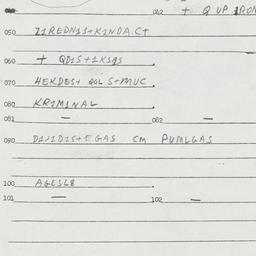 062 + Q UP IRON
050 11REDN1S+K1NDA.CT
060 + QD1S+1K1gS
070 HEKDES+ QGL S+MUC
080 KR1M1NAL
081 — 082 —
090 D1J1D1S+EGAS CM PUMLGAS
100 AGESL8
101 — 102 —